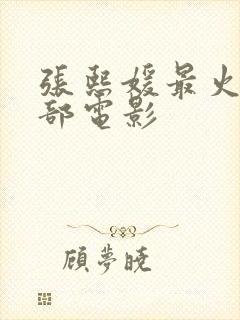 張熙媛最火
部電影
顧夢曉